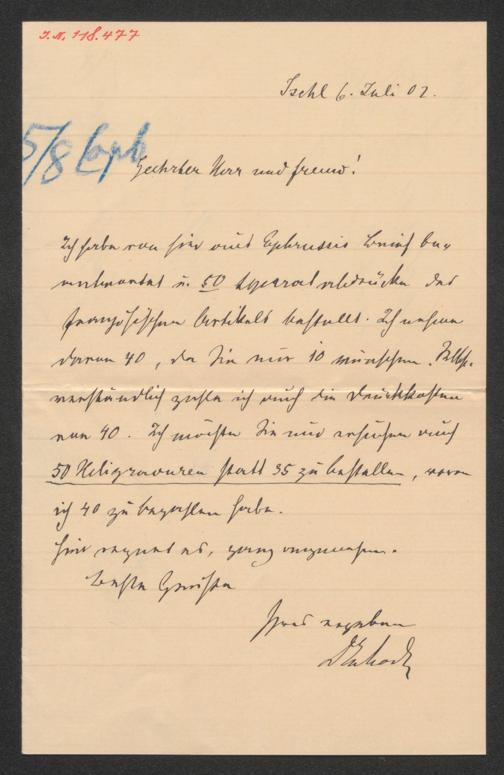 I.N. 118.477
Ischl 6. Juli 02.
5/8 Eph
Geehrter Herr und Freund!
Ich habe von hier aus Ephrussis Brief be-
antwortet u. 50 Separatabdrücke des
französischen Artikels bestellt. Ich nehme
davon 40, da Sie nur 10 wünschen. Selbst-
verständlich zahle ich auch die Druckkosten
von 40. Ich möchte Sie nur ersuchen auch
50 Heliogravuren statt 35 zu bestellen, wovon
ich 40 zu bezahlen habe.
Hier regnet es, ganz angenehm.
Beste Grüsse
Ihres ergebenen